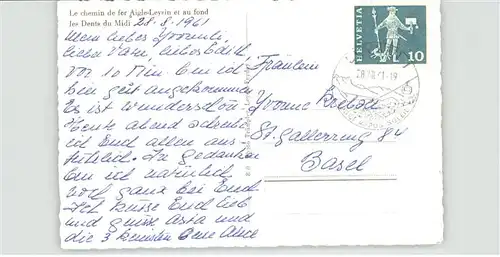 Le chemin de fer Aigle-Leysin et au fond
les Dents du Midi
28.8.1961
Mein liebes Yvonnli,
liebe Vati, liebes Edith
Vor 10 Min. bin ich
hier gut angekommen
Es ist wunderschön.
Heute abend schreibe
ich Euch allen aus-
führlich. In Gedanken
bin ich natürlich
noch ganz bei Euch
Ich küsse Euch lieb
und grüsse Asta und
die 3
Fräulein
Yvonne
St. Gallerring 84
Basel
HELVETIA
10